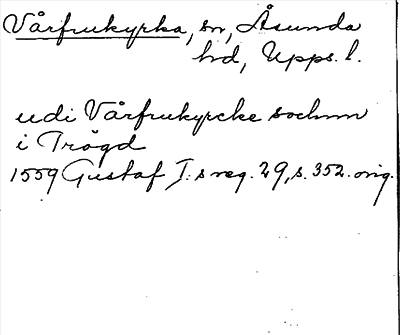 Vårfrukyrka, sn, Åsunda
hd, Upps. l.
udi Vårfrukyrcke sochnn
i Trögd
1559 Gustaf I:s reg. 29, s. 352. orig.